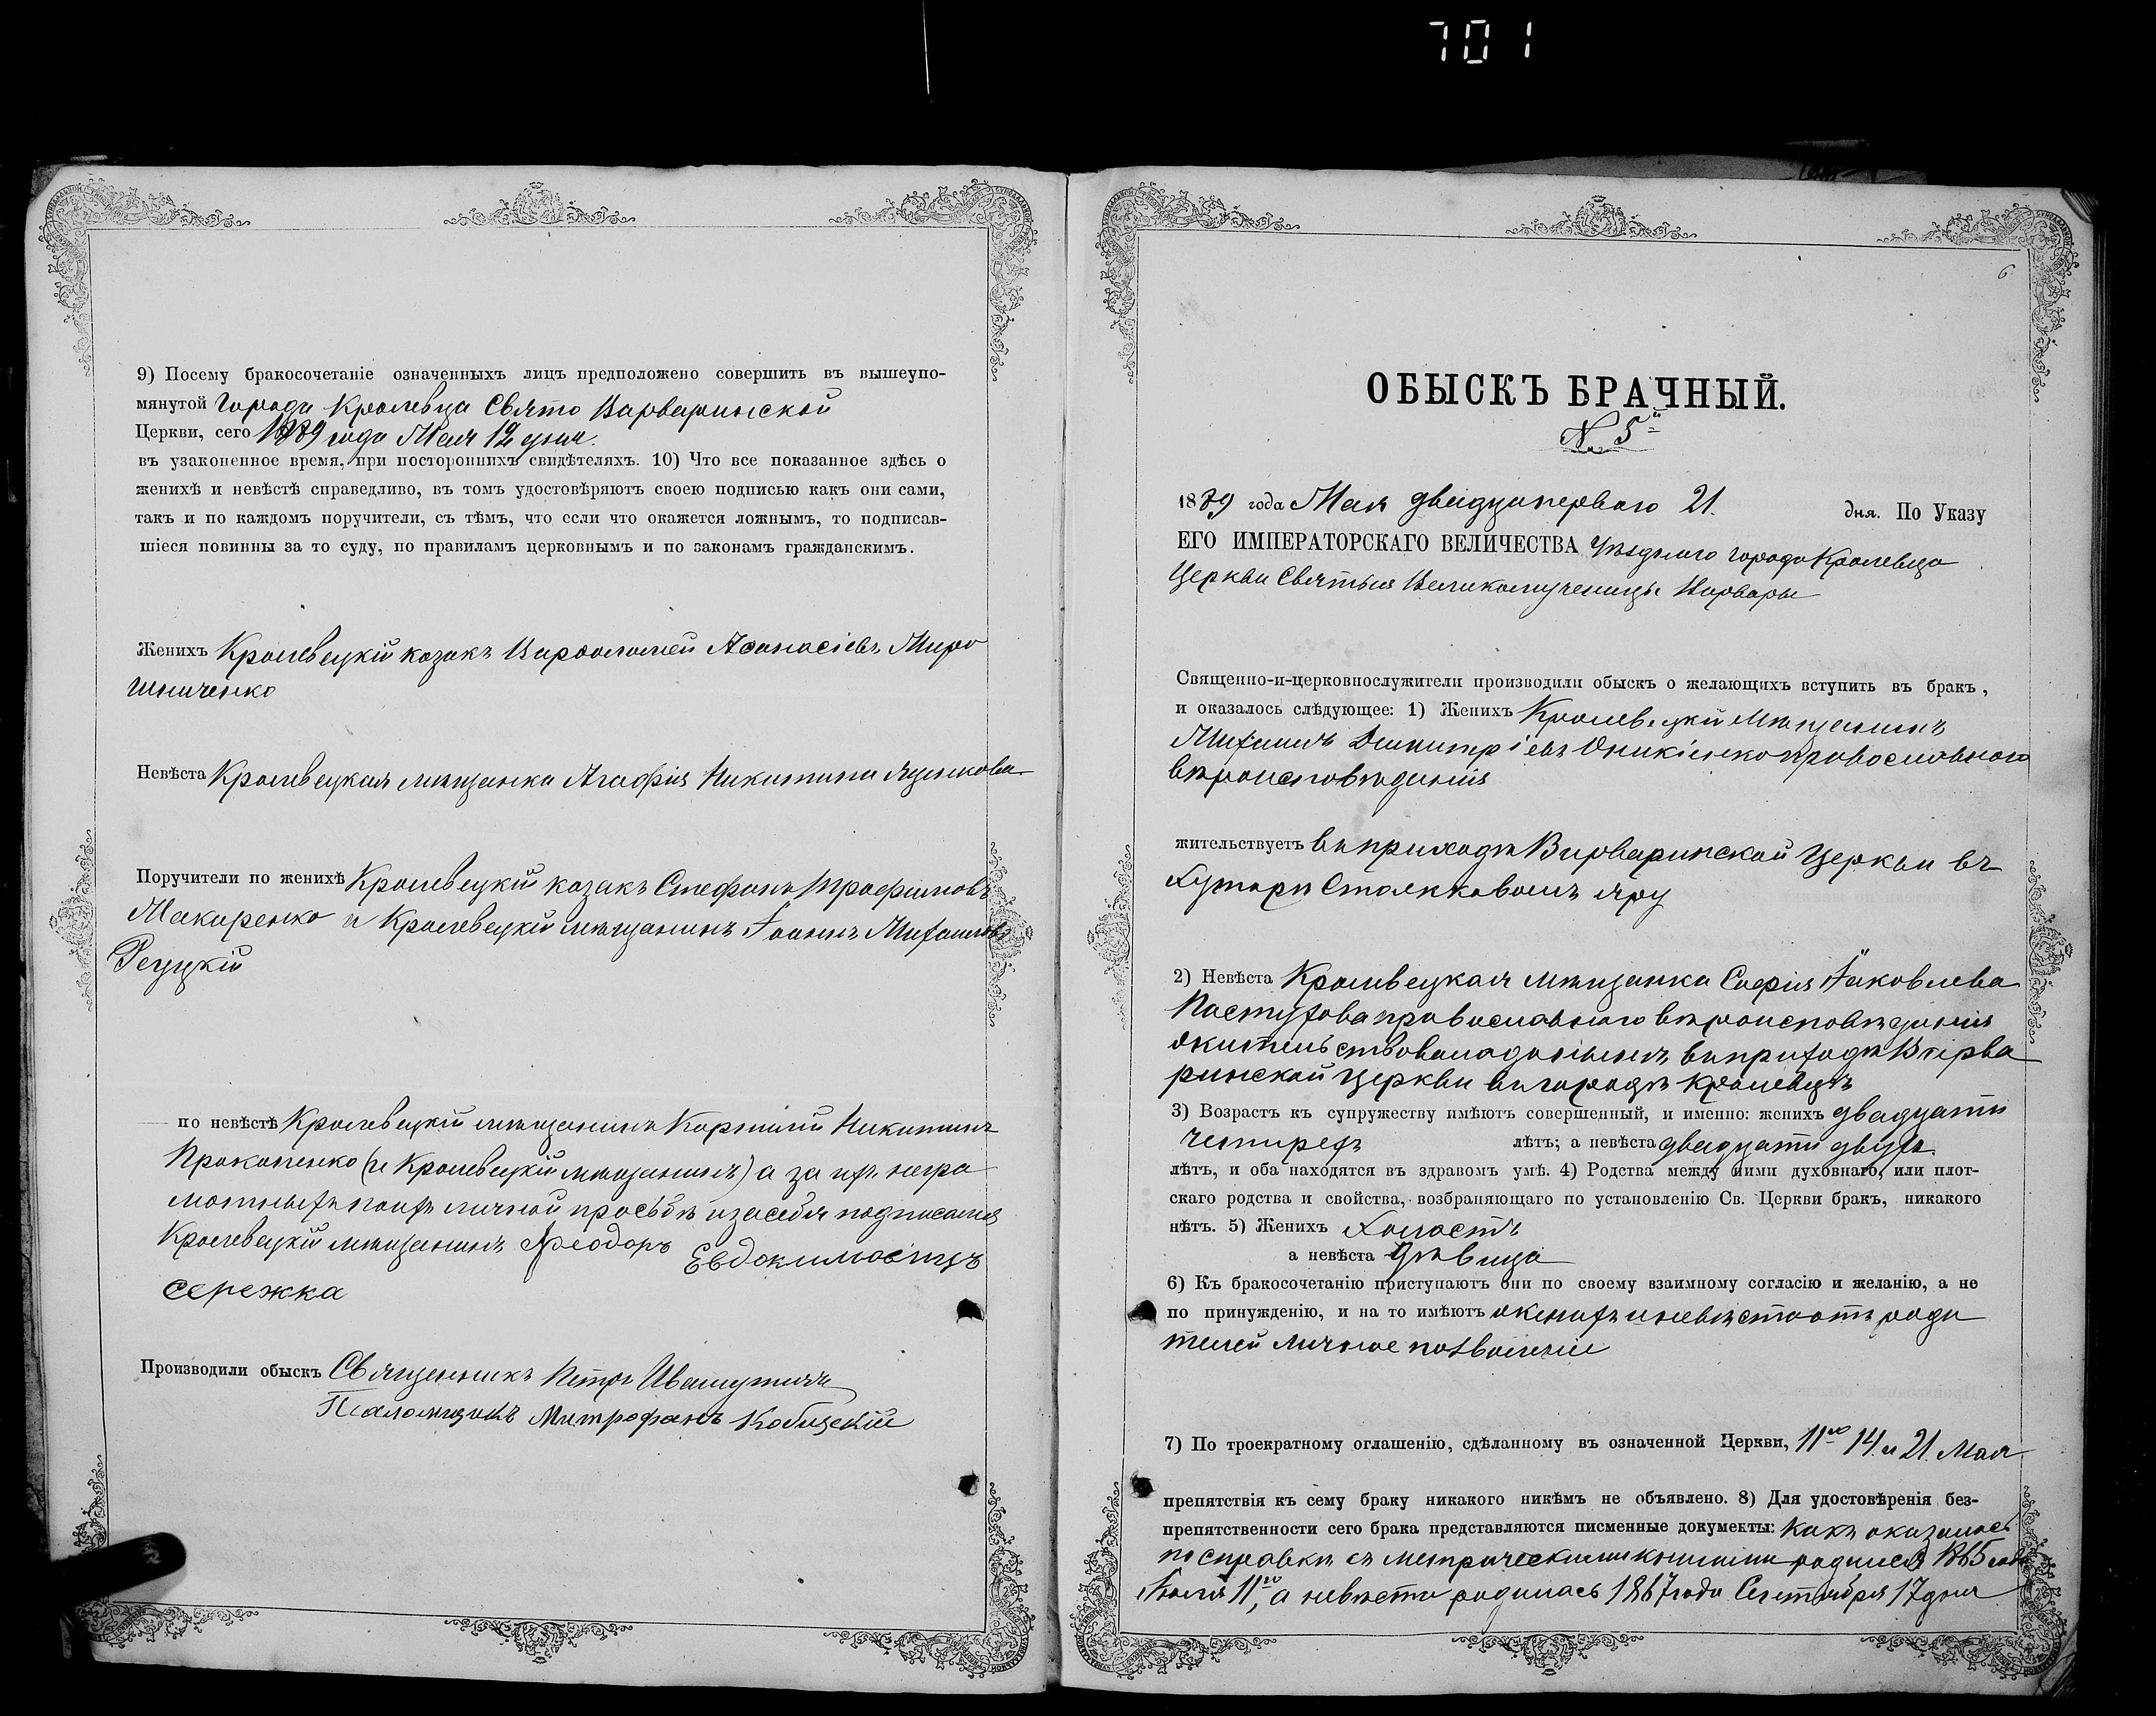 701
9) Посему бракосочетаніе означенныхъ лицъ предположено совершить въ вышеупо-
мянутой Города Кролевца Свято Варваринской
Церкви, сего 1889 года Мая 12 дня.
въ узаконенное время, при постороннихъ свидѣтеляхъ. 10) Что все показанное здѣсь о
женихѣ и невѣстѣ справедливо, въ томъ удостовѣряютъ своею подписью какъ они сами,
такъ и по каждомъ поручители, съ тѣмъ, что если что окажется ложнымъ, то подписав-
шіеся повинны за то суду, по правиламъ церковнымъ и по законамъ гражданскимъ.
Женихъ Кролевецкій козакъ Варѳоломей Аѳанасіевъ Миро
шниченко
Невѣста Кролевецкая мѣщанка Агафія Никитина
Поручители по женихѣ Кролевецкій козакъ Стефанъ Трофимовъ
Макаренко и Кролевецкій мѣщанинъ Іоаннъ Михаиловъ
Рецкій
по невѣстѣ Кролевецкій мѣщанинъ Корнилій Никитинъ
Прокопенко (и Кролевецкій мѣщанинъ) а за ихъ негра
мотныхъ по ихъ личной просьбѣ и за себя подписался
Кролевецкій мѣщанинъ Ѳеодоръ Евдокимовичъ
Сережка
Производили обыскъ Священникъ Петръ
Псаломщикъ Митрофанъ Кобищскій
6
ОБЫСКЪ БРАЧНЫЙ.
№ 5й
1889 года Мая двадцаперваго 21. дня. По Указу
ЕГО ИМПЕРАТОРСКАГО ВЕЛИЧЕСТВА Уѣзднаго города Кролевца
Церкви Святыя Великомученицы Варвары
Священно-и-церковнослужители производили обыскъ о желающихъ вступить въ бракъ,
и оказалось слѣдующее: 1) Женихъ Кролевецкій Мѣщанинъ
Михаилъ Димитріевъ Оникіенко православнаго
вѣроисповѣданія
жительствуетъ въ приходѣ Варваринской Церкви въ
Хуторѣ яру
2) Невѣста Кролевецкая мѣщанка Софія Іаковлева
Пастухова православнаго вѣроисповѣданія
жительствовала донынѣ въ приходѣ Варва
ринской Церкви въ городѣ Кролевцѣ
3) Возрастъ къ супружеству имѣютъ совершенный, и именно: женихъ двадцати
четырехъ лѣтъ; а невѣста двадцати двухъ
лѣтъ, и оба находятся въ здравомъ умѣ. 4) Родства между ними духовнаго, или плот-
скаго родства и свойства, возбраняющаго по установленію Св. Церкви бракъ, никакого
нѣтъ. 5) Женихъ Холостъ
а невѣста дѣвица
6) Къ бракосочетанію приступаютъ они по своему взаимному согласію и желанію, а не
по принужденію, и на то имѣютъ женихъ и невѣста отъ роди
телей личное позволеніе
7) По троекратному оглашенію, сдѣланному въ означенной Церкви, 11го 14. и 21. Мая
препятствія къ сему браку никакого никѣмъ не объявлено. 8) Для удостовѣренія без-
препятственности сего брака представляются писменные документы: Какъ оказалось
по справкѣ съ метрическими книгами родился 1865 года
Іюля 11го, а невѣста родилась 1867 года Сентября 17 дня